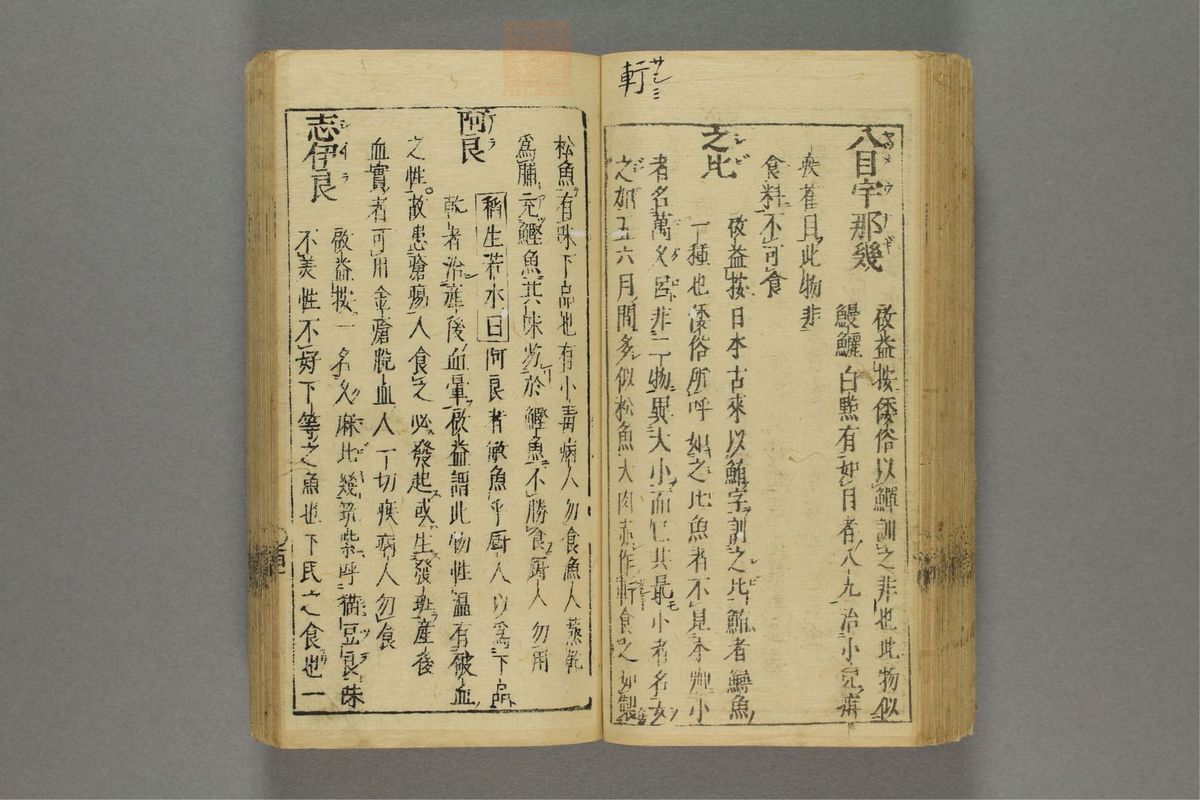 軒 サシミ
八目宇那幾 啟益按倭俗以鱓訓之非也此物似
鰻鱺白㸃有如目者八九治小兒疳
疾雀目此物非
食料不可食
之比 啟益按日本古來以鮪字訓之比鮪者鱘魚
一種也倭俗所呼如之比魚者不見本艸小
者名萬久呂非二物異大小而仁其最小者名女
之如五六月間多似松魚大肉赤作軒食之如製
松魚有味下品也有小毒病人勿食漁人蒸乾
爲脯充鰹魚其味劣於鰹魚不勝食厨人勿用
阿良 稻生若水曰阿良者敏魚乎厨人以爲下品
乾者治産後血暈啟益謂此物性温有破血
之性故患瘡瘍人食之必發起或生發斑産後
血實者可用金瘡脱血人一切疾病人勿食
志伊良 啟益按一名久麻比幾筑紫呼猫豆良味
不美性不好下等之魚也下民之食也一